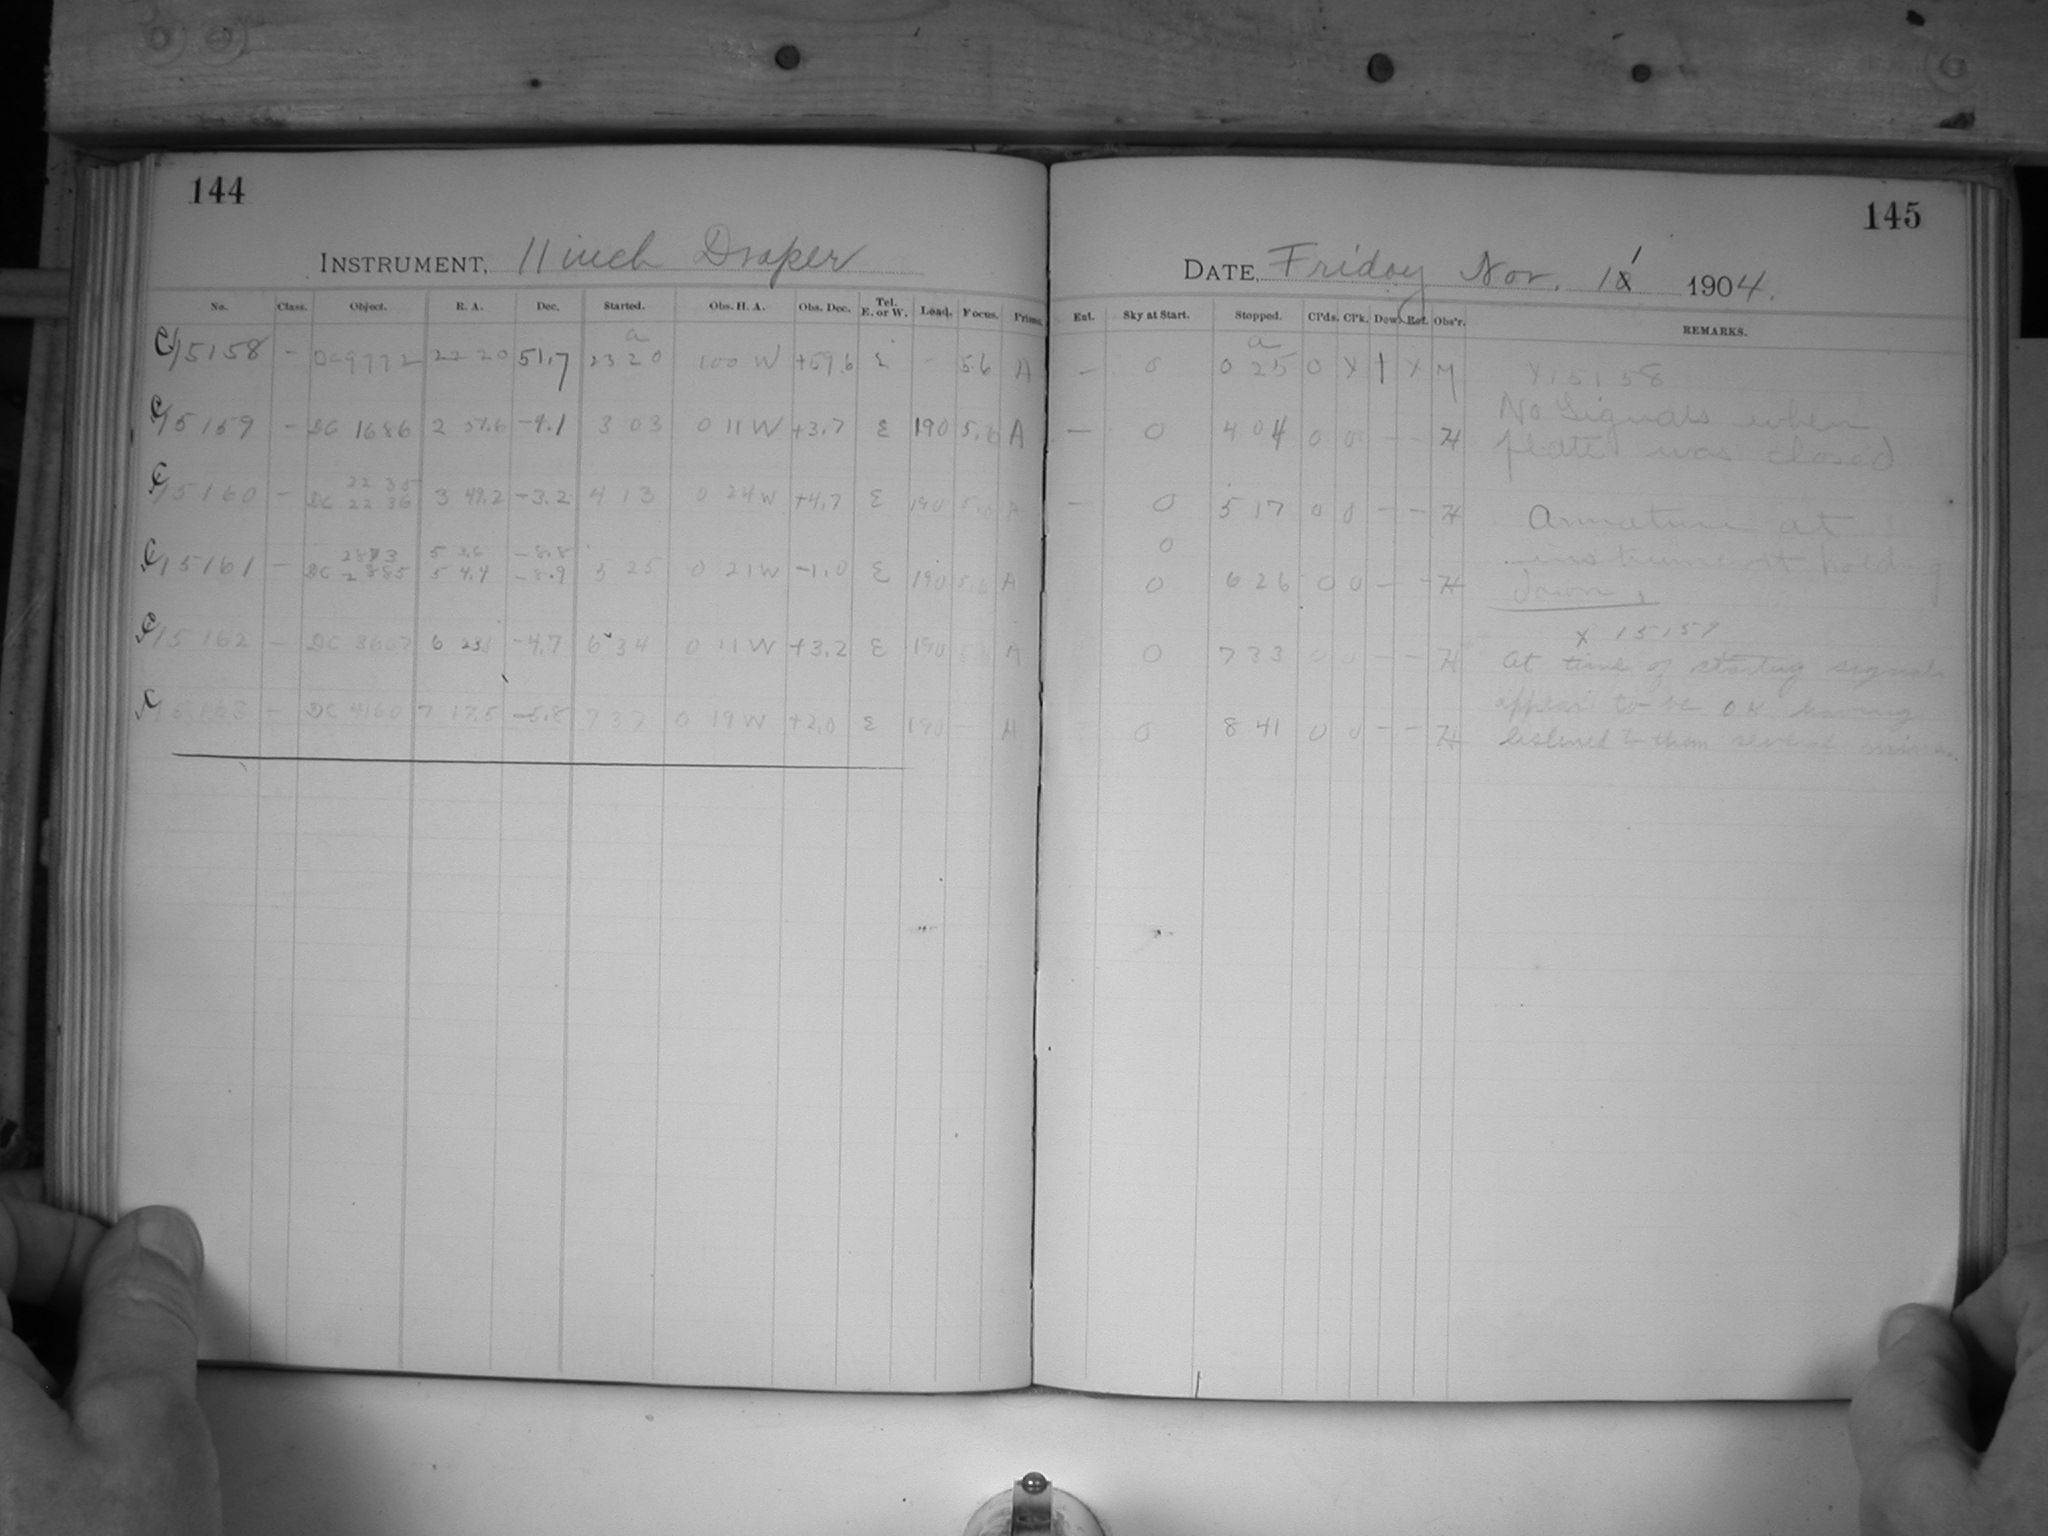 144
INSTRUMENT, 11 inch Draper
No. Class. Object. R. A. Dec. Started. Obs. H. A. Obs. Dec. Tel. E. or W. Load. Focus. Prism.
a
C15158 - DC 9772 22 20 51.7 23 20 1 00 W +59.6 E - 5.6 A
C15159 - DC 1686 2 57.6 -4.1 3 03 0 11 W +3.7 E 190 5.6 A
22 35
C15160 - DC 22 36 3 49.2 -3.2 4 13 0 24 W +4.7 E 190 5.6 A
2873 5 3.6 -8.8
C15161 - DC 2885 5 4.4 -8.9 5 25 0 21 W -1.0 E 190 5.6 A
C15162 - DC 3607 6 23.1 -4.7 6 34 0 11 W +3.2 E 190 5.6 A
C15163 - DC 4160 7 17.5 -5.8 7 37 0 19 W +2.0 E 190 - A
145
DATE, Friday Nov. 11 1904.
Ent. Sky at Start. Stopped. Cl'ds. Cl'k. Dew. Ref. Obs'r. REMARKS.
a
- 0 0 25 0 X † X M X15158
No Signals when
- 0 4 04 0 0 - - H plate was closed
- 0 5 17 0 0 - - H Armature at
0 instrument holding
0 6 26 0 0 - - H down.
X 15159
0 7 33 0 0 - - H At time of starting signals
appear to be OK having
0 8 41 0 0 - - H listened to them several mins.